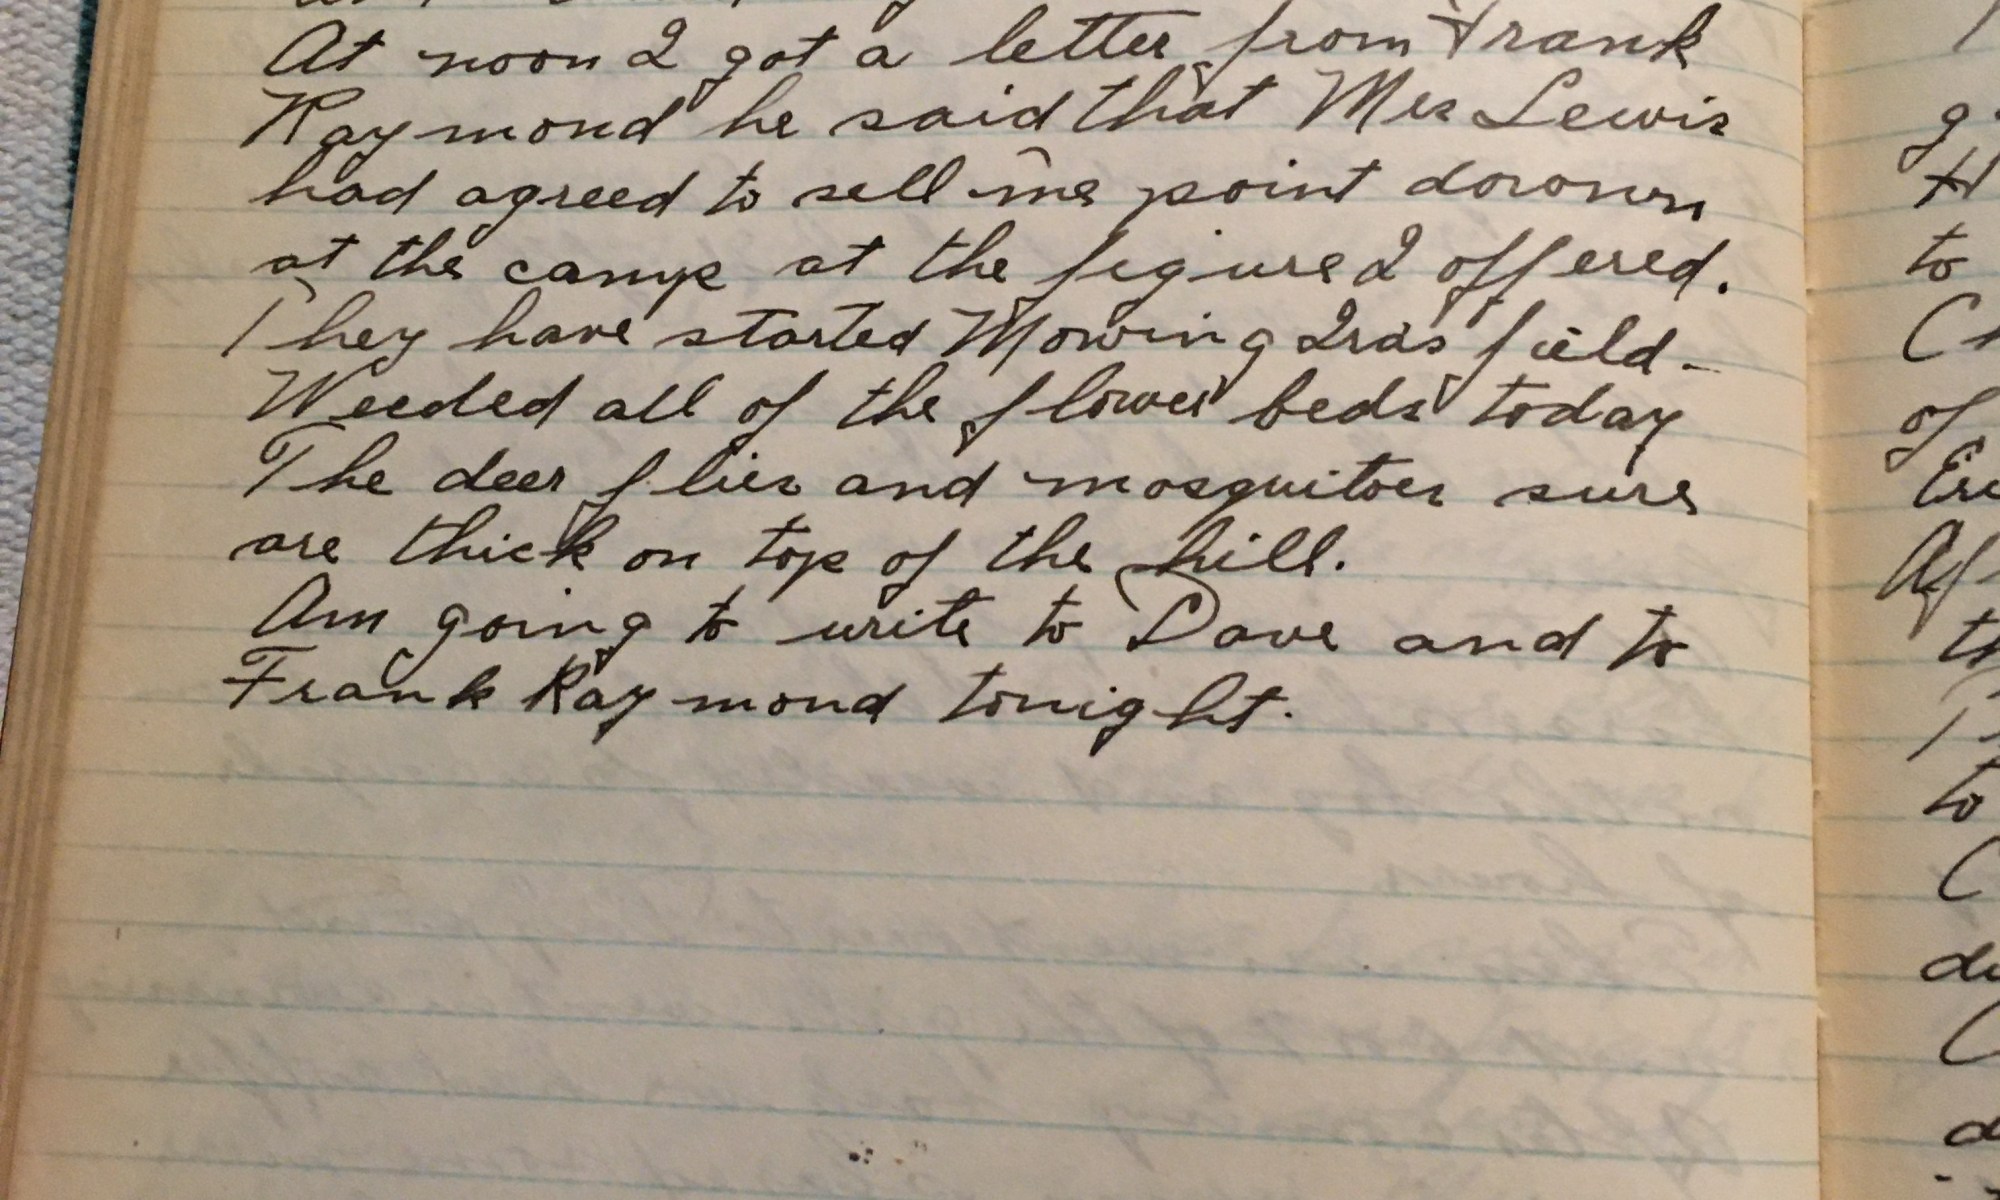 At noon I got a letter from Frank
Raymond he said that Mrs Lewis
had agreed to sell me point down
at the camp at the figure I offered.
They have started Mowing Ira's field -
Weeded all of the flower beds today
The deer flies and mosquitoes sure
are thick on top of the hill.
Am going to write to Dave and to
Frank Raymond tonight.
to
of
to